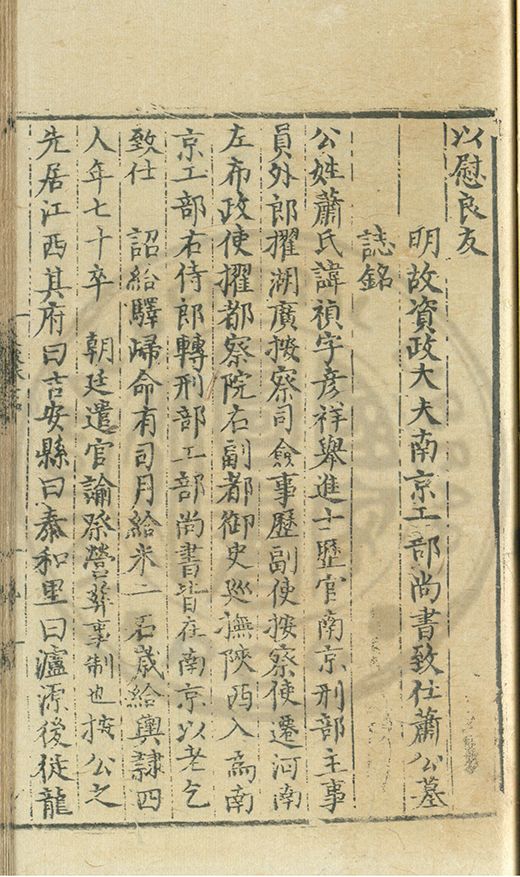 以慰良友
明故資政大夫南京工部尚書致仕蕭公墓
誌銘
公姓蕭氏諱禎字彥祥舉進士歷官南京刑部主事
員外郎擢湖廣按察司僉事歷副使按察使遷河南
左布政使擢都察院右副都御史巡撫陝西入為南
京工部右侍郎轉刑部工部尚書皆在南京以老乞
致仕 詔給驛歸命有司月給米二石歲給輿隸四
人年七十卒 朝廷遣官諭祭營葬事制也按公之
先居江西其府曰吉安縣曰泰和里曰瀘源後徙龍